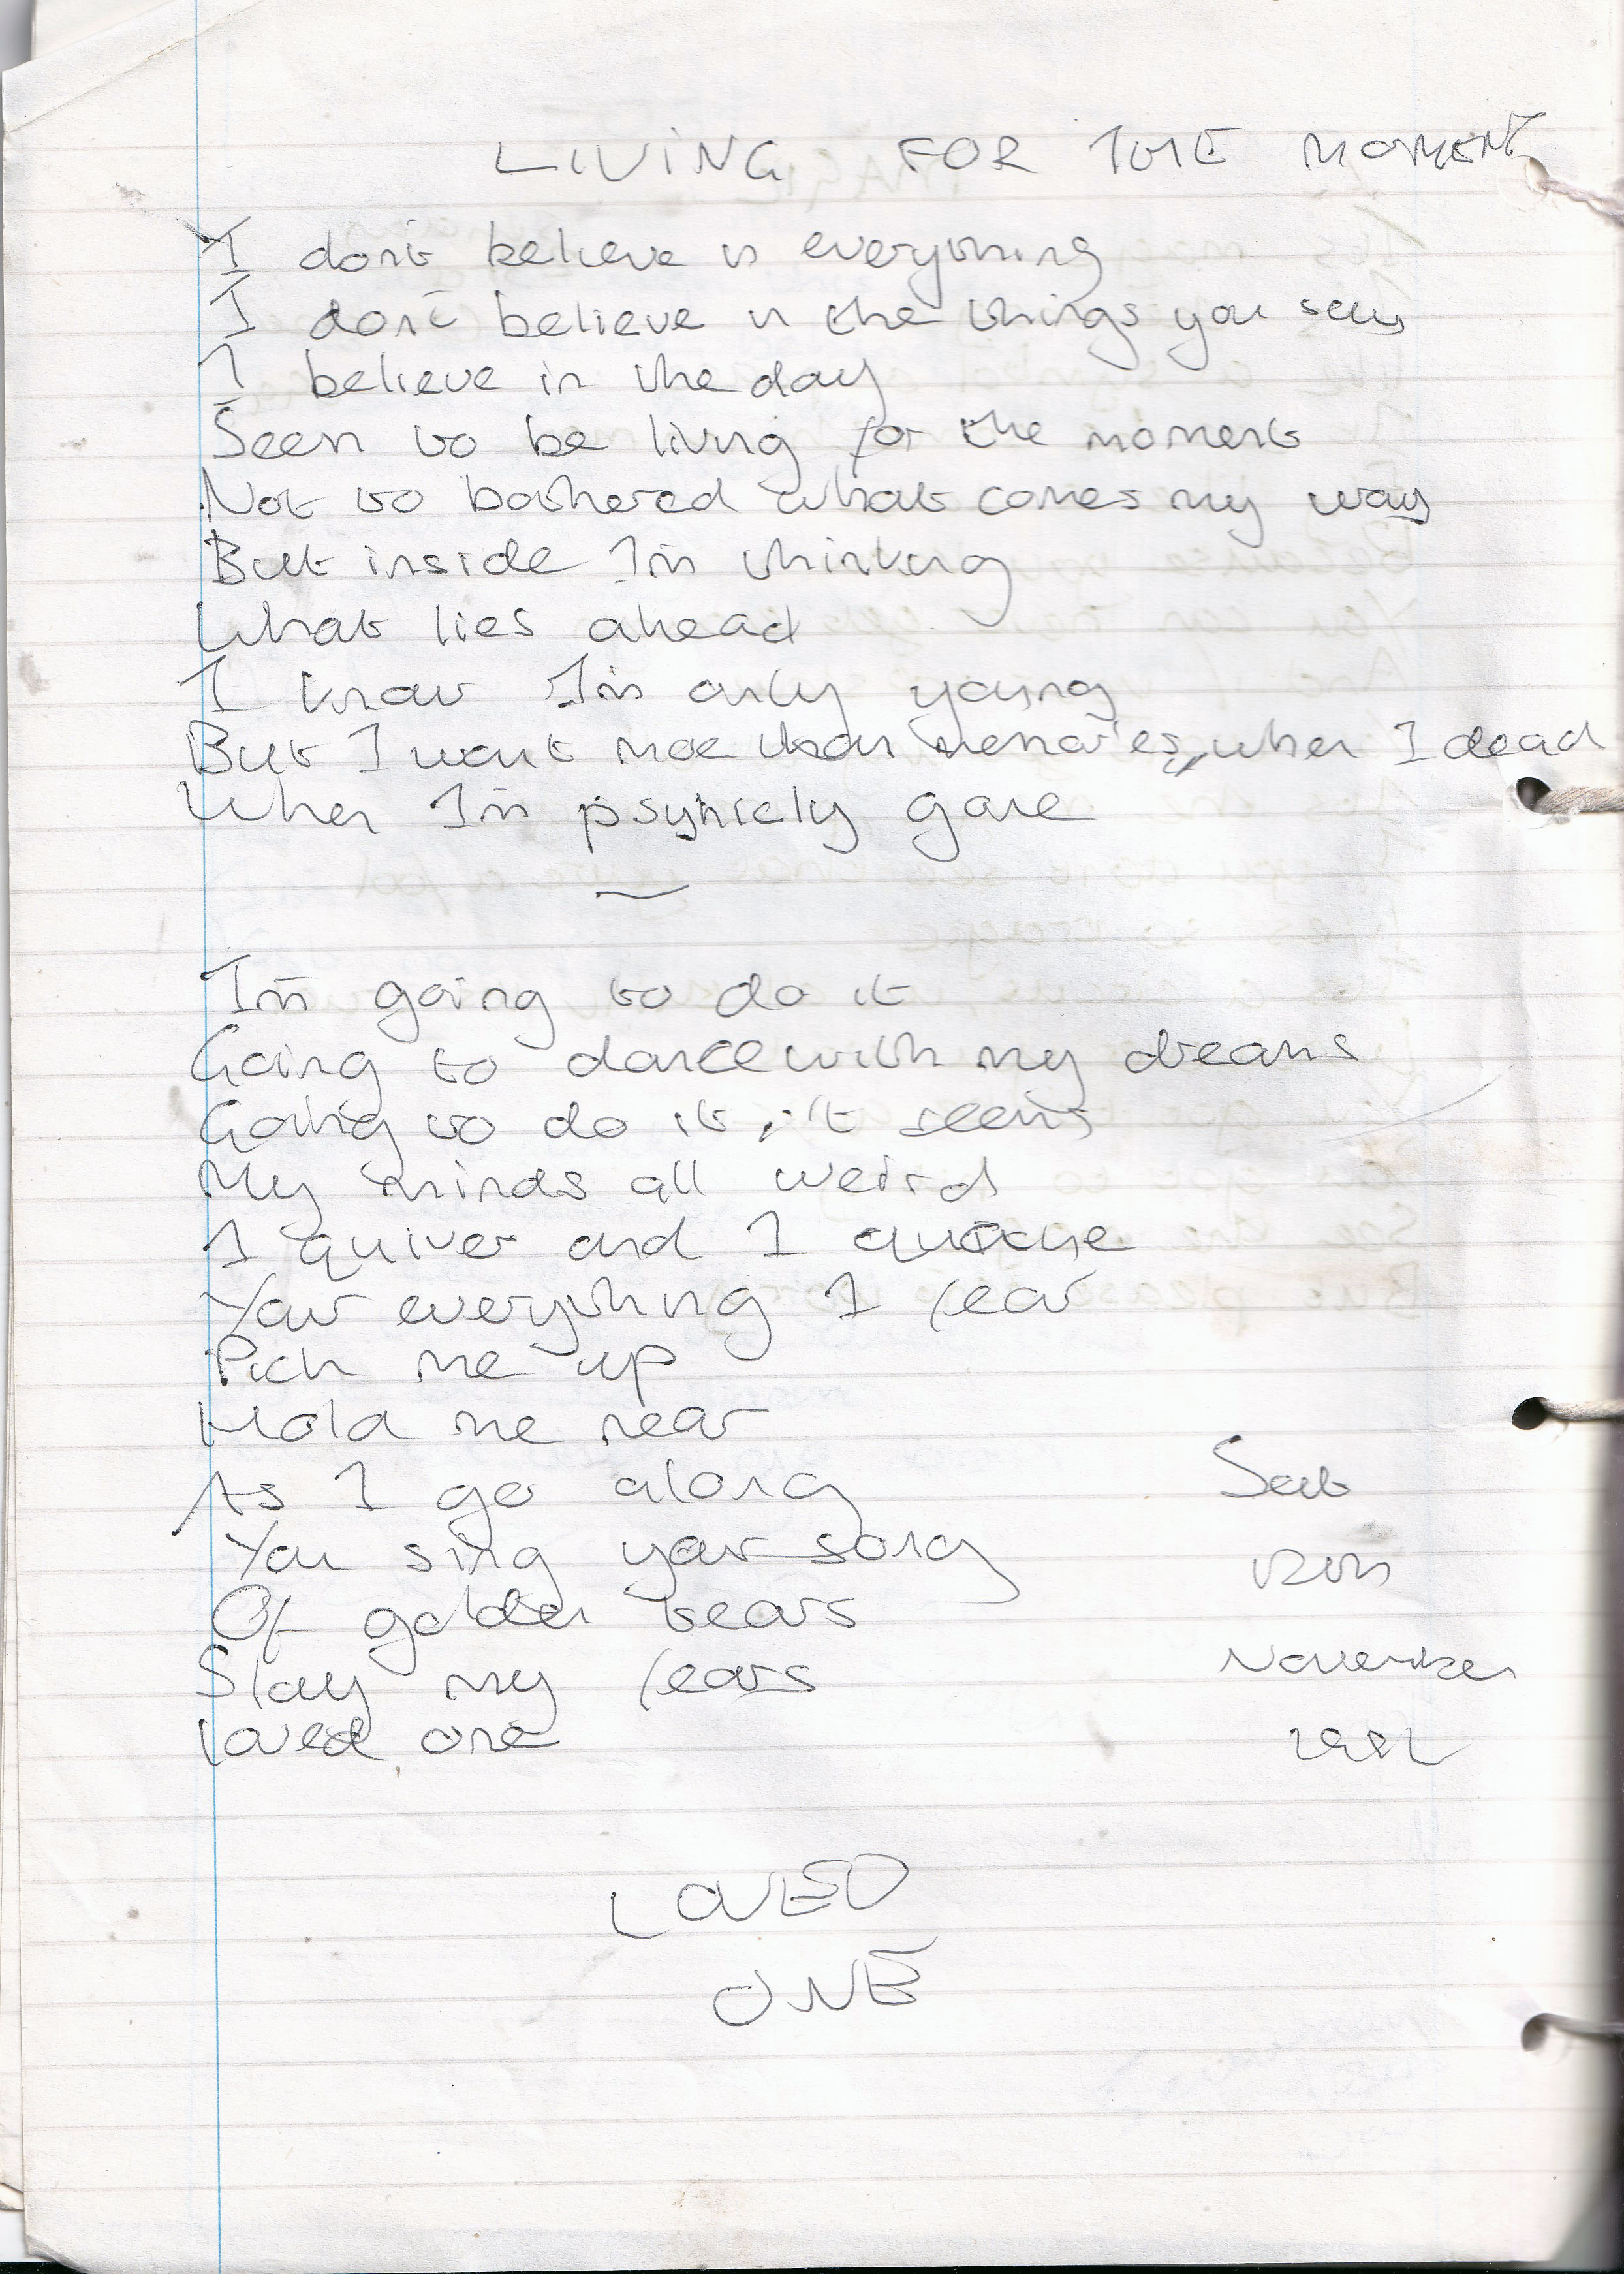 LIVING FOR THE MOMENT
I don't believe in everything
I don't believe in the things you say
I believe in the day
Seem to be living for the moment
Not to bothered what comes my way
But inside I'm thinking
What lies ahead
I know I'm only young
But I want moe than memories, when I dead
When I'm psyhicly gone
I'm going to do it
Going to dance with my dreams
Going to do it, it seems
My minds all weird
I quiver and I
Your everything I fear
Pick me up
Hold me near
As I go along
You sing your song
Of golden tears
Slay my fears
Loved one
Sat
12th
November
LOVED
ONE